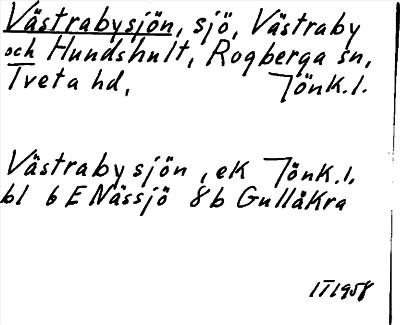 Västrabysjön, sjö, Västraby
och Hundshult, Rogberga sn,
Tveta hd, Jönk.l.
Västrabysjön, ek Jönk.l.
bl 6 E Nässjö 8b Gullåkra
IT1958